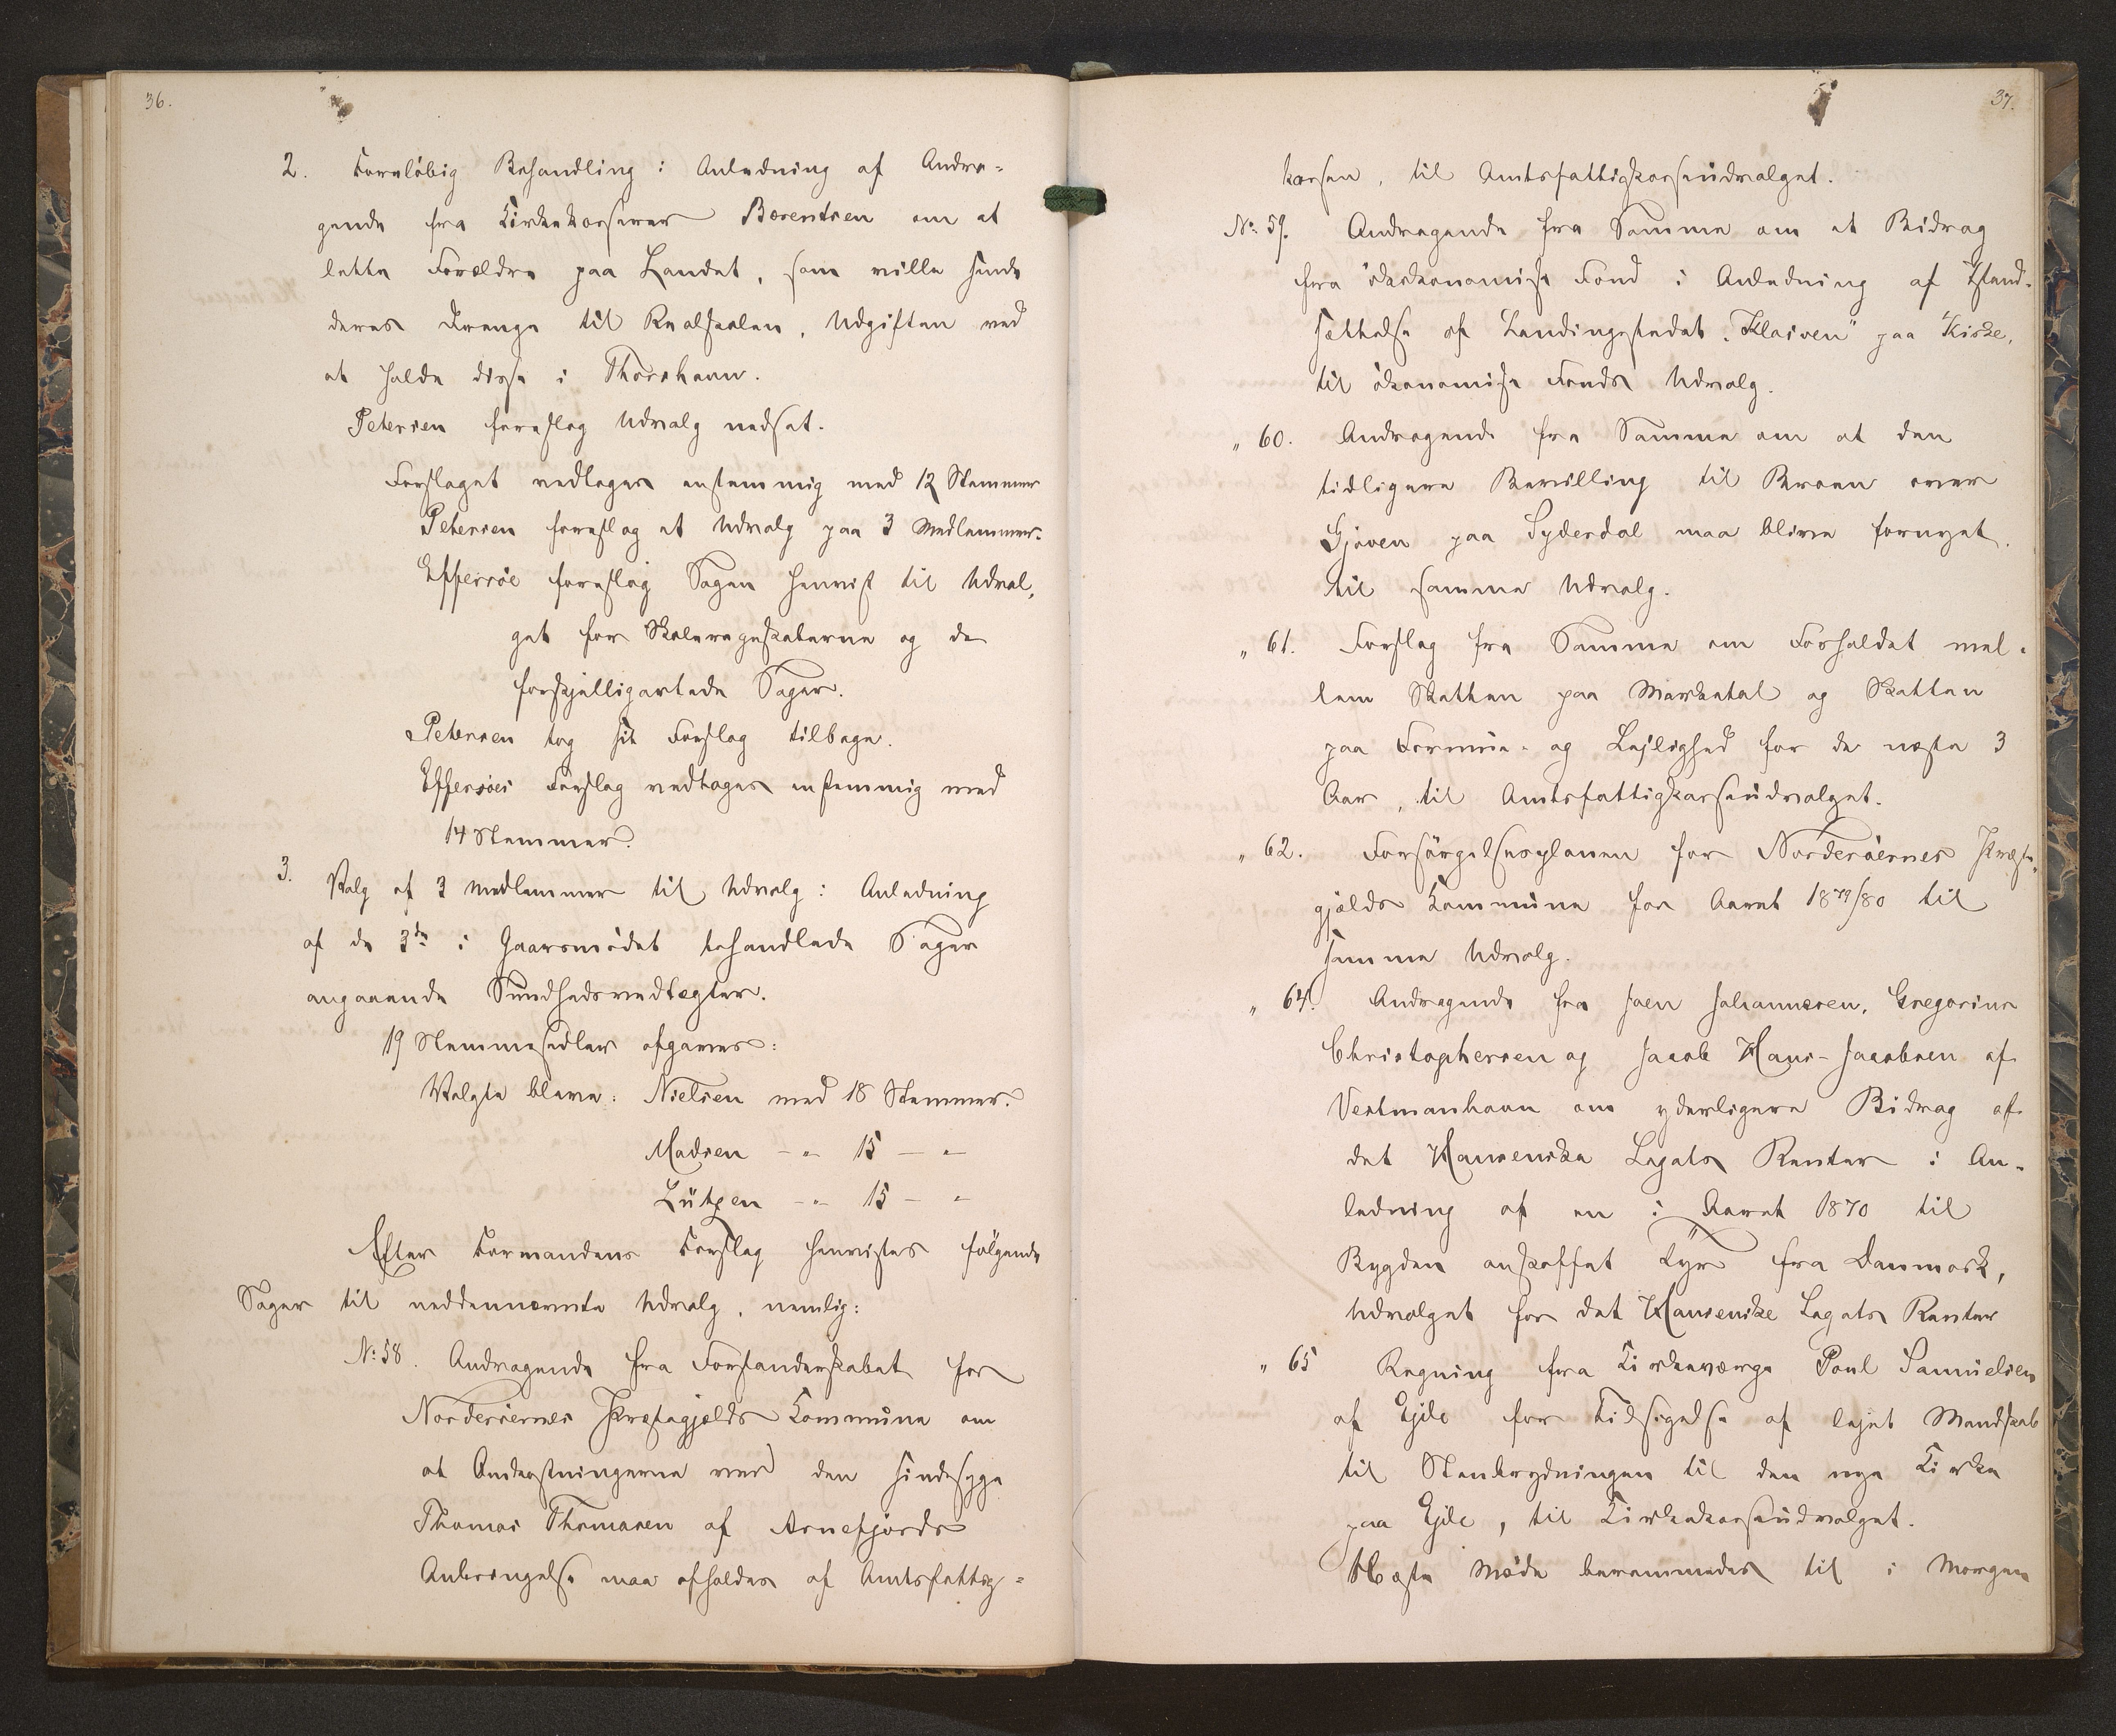 36.
2. Foreløbig Behandling i Anledning af Andra-
gende fra Kirkekasserer Bærentsen om at
lette Forældre paa Landet, som ville sende
deres Drenge til Realskolen, Udgiften ved
at holde disse i Thorshavn.
Petersen foreslog Udvalg nedsat.
Forslaget vedtoges enstemmig med 12 Stemmer
Petersen foreslog et Udvalg paa 3 Medlemmer.
Effersøe foreslog Sagen henvist til Udval,
get for Skoleregnskaberne og de
forskjelligartede Sager.
Petersen tog sit Forslag tilbage.
Effersøes Forslag vedtoges enstemmig med
14 Stemmer.
3. Valg af 3 Medlemmer til Udvalg i Anledning
af de 3de i Gaarsmødet behandlede Sager
angaaende Sundhedsvedtægter.
19 Stemmesedler afgaves:
Valgte bleve: Nielsen med 18 Stemmer.
Madsen - " 15 - "
Lützen - " 15 - "
Efter Formandens Forslag henvistes følgende
Sager til neddennævnte Udvalg, nemlig:
No: 58. Andragende fra Forstanderskabet for
Norderøernes Præstegjælds Kommune om
at Omkostningerne ved den sindssyge
Thomas Thomasen af Arnefjords
Anbringelse maa afholdes af Amtsfattig-
37.
kassen, til Amtsfattigkasseudvalget.
No: 59. Andragende fra Samme om et Bidrag
fra økonomisk Fond i Anledning af Istand-
sættelse af Landingsstedet "Klaiven" paa Viske,
til økonomisk Fonds Udvalg.
" 60. Andragende fra Samme om at den
tidligere Bevilling til Broen over
Gjøven paa Syderdal maa blive fornyet.
til samme Udvalg.
" 61. Forslag fra Samme om Forholdet mel-
lem Skatten paa Markatal og Skatten
paa Formue- og Lejlighed for de næste 3
Aar, til Amtsfattigkasseudvalget.
" 62. Forsørgelsesplanen for Norderøernes Præste,
gjælds Kommune for Aaret 1879/80 til
samme Udvalg.
" 64. Andragende fra Joen Johannesen, Gregorius
Christophersen og Jacob Hans-Jacobsen af
Vestmanhavn om yderligere Bidrag af
det Hansenske Legats Renter i An-
ledning af en i Aaret 1870 til
Bygden anskaffet Tyr fra Danmark,
Udvalget for det Hansenske Legats Renter
" 65 Regning fra Kirkeværge Poul Samuelsen
af Ejde for Tilsigelse af lejet Mandskab
til Stenbrydningen til den nye Kirke
paa Ejde, til Kirkekasseudvalget.
Næste Møde berammedes til i Morgen